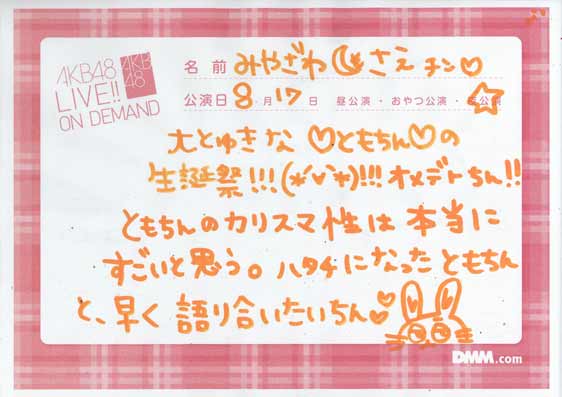 AKB48
LIVE!!
ON DEMAND
AKB
48
名前 みやざわ さえチン♡
公演日 8 月 17 日 昼公演・おやつ公演・ 公演
大とゆきな♡ともちん♡の
生誕祭!!!(*'∨'*)!!!オメデトちん!!
ともちんのカリスマ性は本当に
すごいと思う。ハタチになったともちん
と、早く語り合いたいちん♡
DMM.com